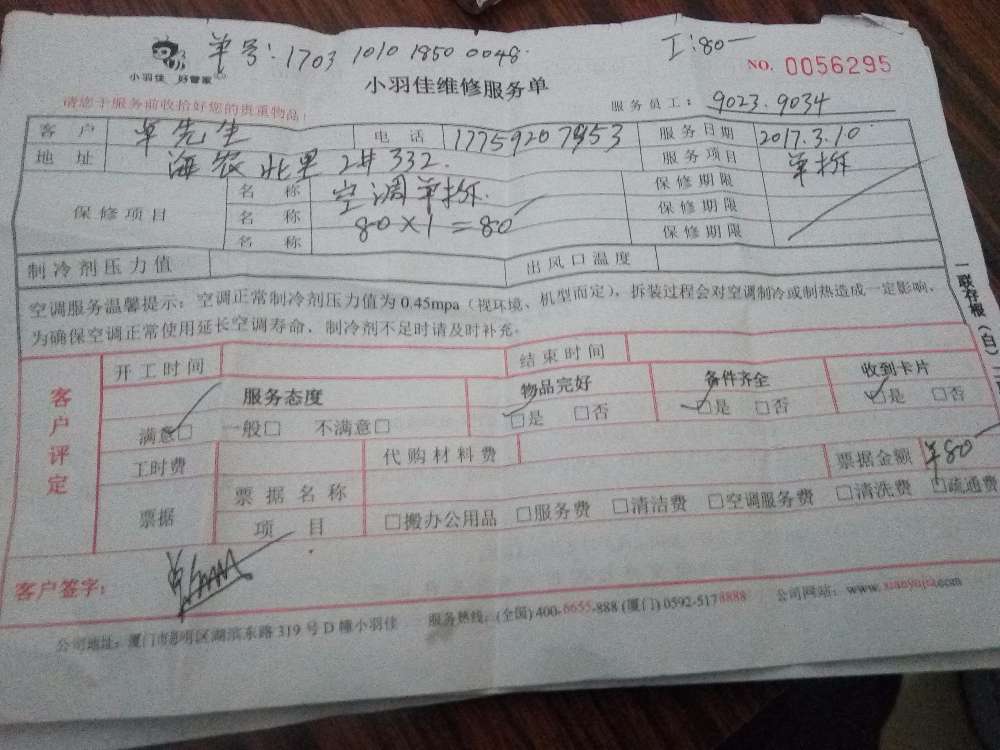 单号：1703 1010 1850 0048.
工:80—
小羽佳 好管家
小羽佳维修服务单
NO. 0056295
请您于服务前收拾好您的贵重物品！
服务员工：9023.9034
客户 卓先生 电话 17759207953 服务日期 2017.3.10
地址 海农北里2#332. 服务项目 单拆
保修项目 名称 空调单拆. 保修期限
名称 80×1=80 保修期限
名称 保修期限
制冷剂压力值 出风口温度
空调服务温馨提示：空调正常制冷剂压力值为0.45mpa（视环境、机型而定），拆装过程会对空调制冷或制热造成一定影响、
为确保空调正常使用延长空调寿命、制冷剂不足时请及时补充。
一联存根（白）
客户评定
开工时间 结束时间
服务态度 物品完好 备件齐全 收到卡片
满意□ 一般□ 不满意□ □是 □否 □是 □否 □是 □否
工时费 代购材料费 票据金额 ¥80
票据 票据名称
项目 □搬办公用品 □服务费 □清洁费 □空调服务费 □清洗费 □疏通费
客户签字：
公司地址：厦门市思明区湖滨东路319号D幢小羽佳 服务热线：(全国) 400-6655-888 (厦门) 0592-5178888 公司网站：www.xiaoyujia.com